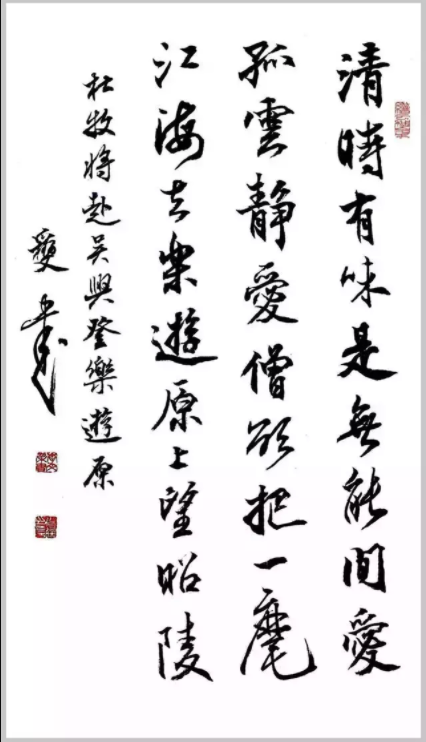 清時有味是無能閒愛
孤雲靜愛僧欲把一麾
江海去樂遊原上望昭陵
杜牧將赴吳興登樂遊原